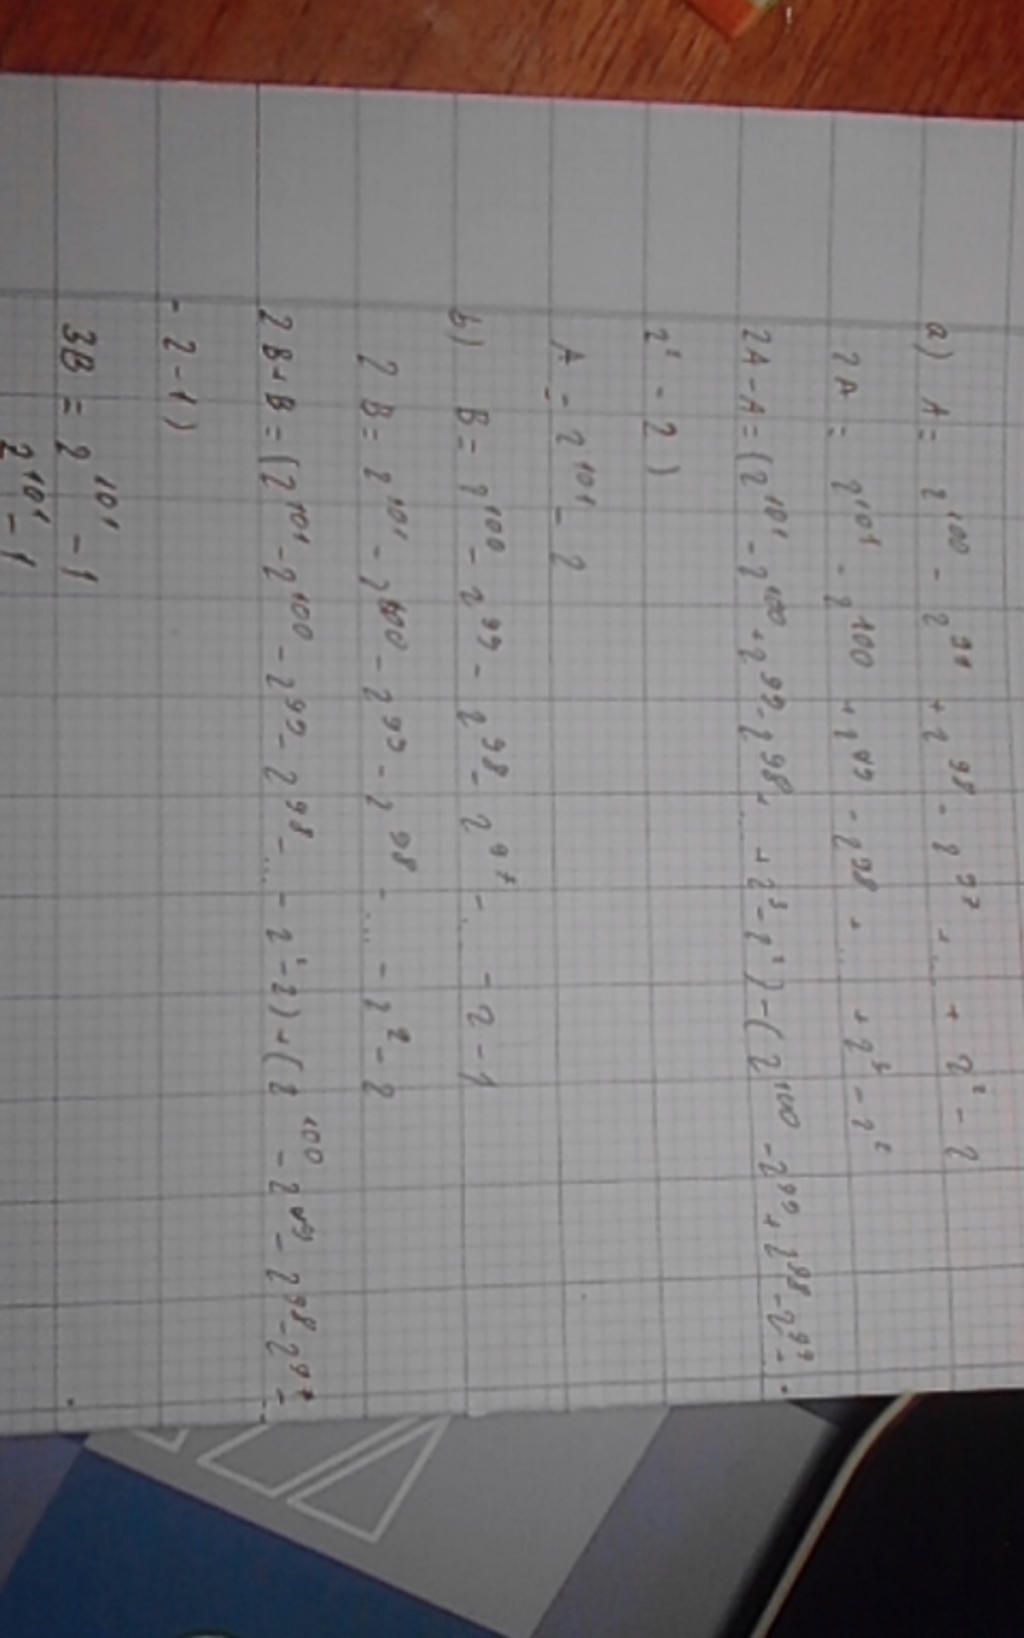 a) A = 2^100 - 2^99 + 2^98 - 2^97 + ... + 2^2 - 2
2A = 2^101 - 2^100 + 2^99 - 2^98 + ... + 2^3 - 2^2
2A - A = (2^101 - 2^100 + 2^99 - 2^98 + ... + 2^3 - 2^2) - (2^100 - 2^99 + 2^98 - 2^97 - .
2^2 - 2)
A = 2^101 - 2
b) B = 2^100 - 2^99 - 2^98 - 2^97 - ... - 2 - 1
2B = 2^101 - 2^100 - 2^99 - 2^98 - ... - 2^2 - 2
2B + B = (2^101 - 2^100 - 2^99 - 2^98 - ... - 2^2 - 2) + (2^100 - 2^99 - 2^98 - 2^97 - ..
- 2 - 1)
3B = 2^101 - 1
2^101 - 1